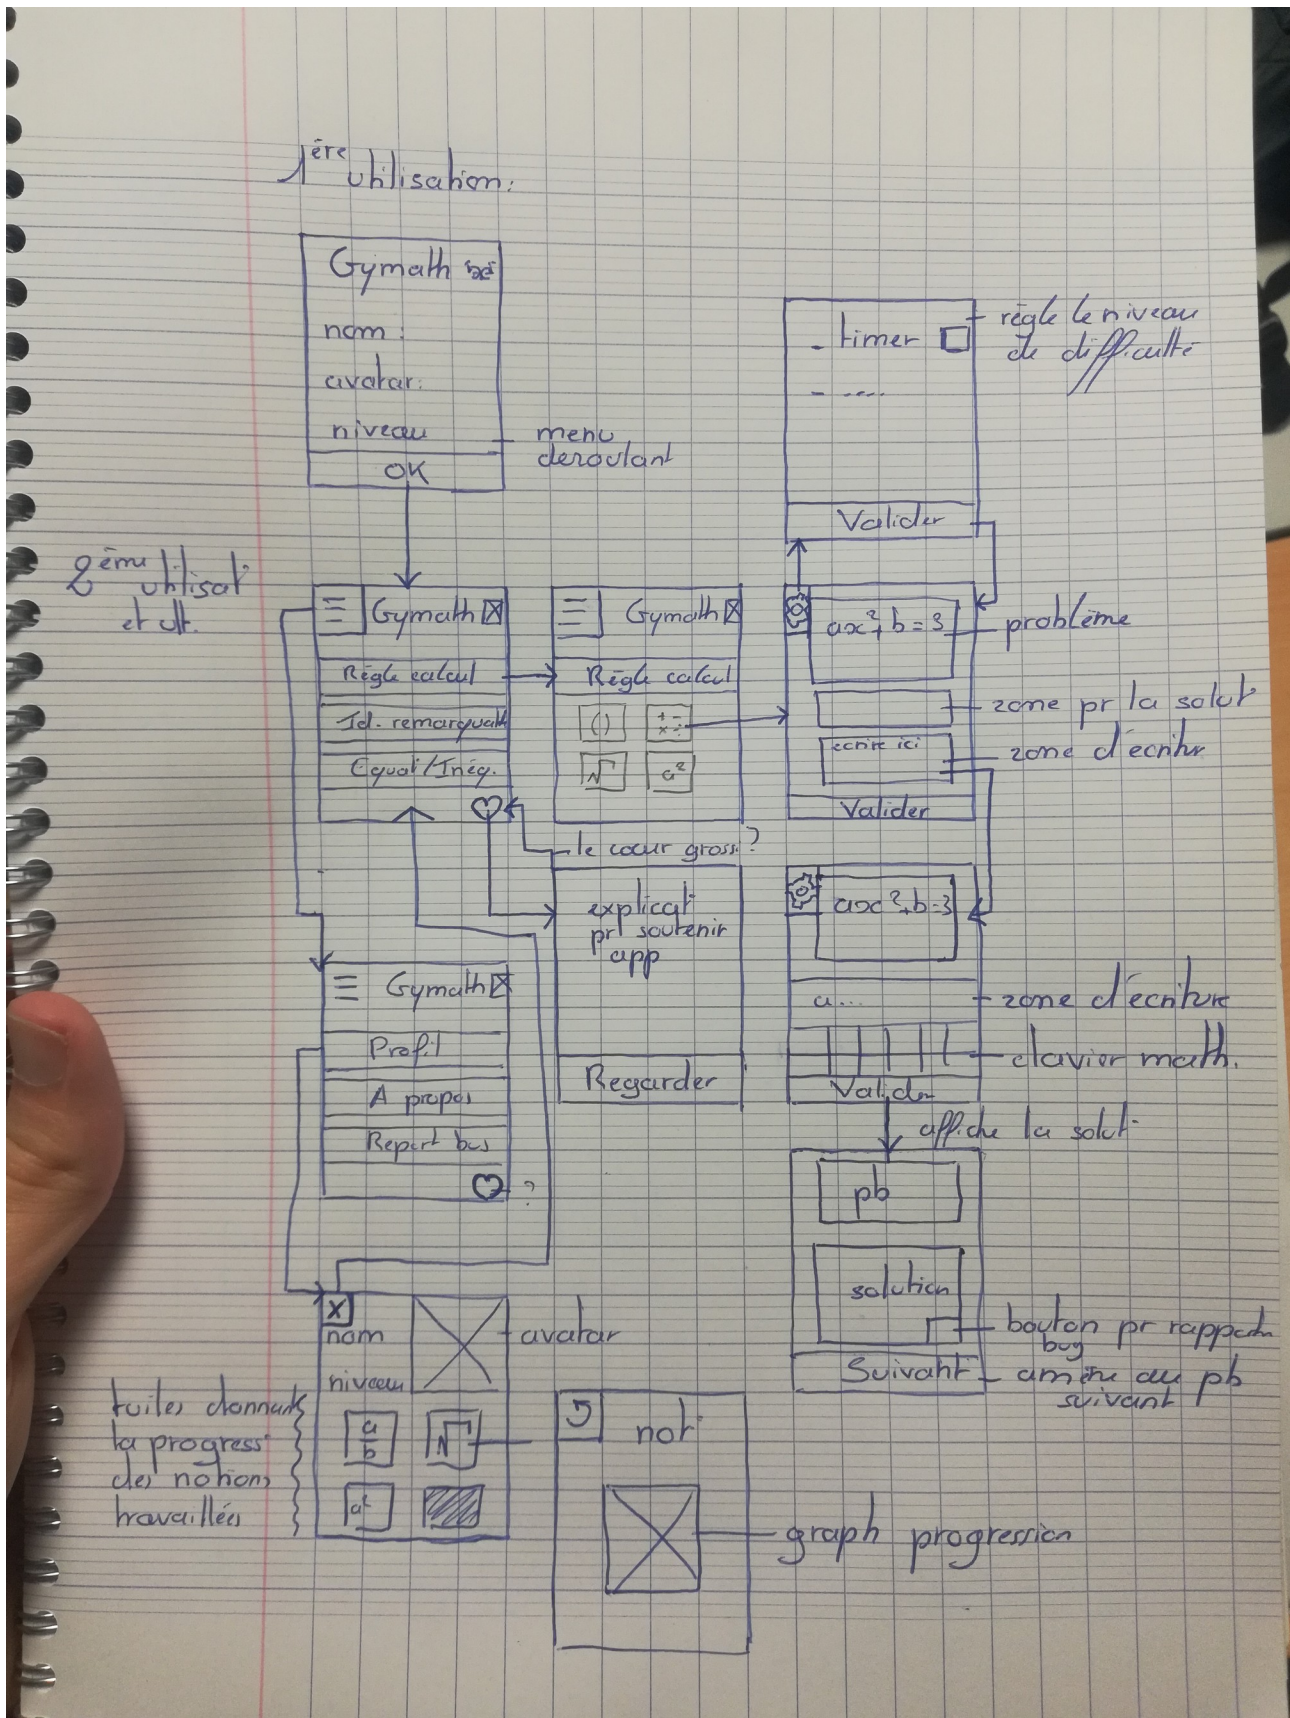 1ère utilisation:
Gymath
nom:
avatar:
niveau
OK
menu
deroulant
- timer
- ....
règle le niveau
de difficulté
Valider
2ème utilisat°
et ult.
Gymath
Règle calcul
Id. remarquab
Equat°/Inéq.
Gymath
Règle calcul
()
+ - × ÷
√
a²
ax²+b=3
problème
zone pr la solut°
ecrire ici
zone d'écritur
Valider
le cœur grossi?
explicat°
pr soutenir
app
Regarder
ax²+b=3
a...
zone d'écriture
clavier math.
Valider
affiche la solut°
Gymath
Profil
A propos
Report bus
?
pb
solution
bouton pr rapporter
bug
Suivant
amène au pb
suivant
X
nom
avatar
niveau
tuiles donnant
la progress°
des notions
travaillées
a/b
√
a²
not°
graph progression